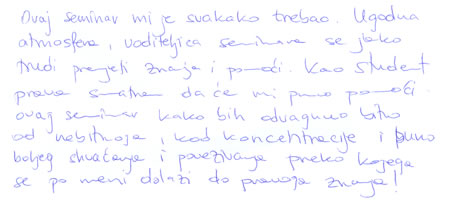 Ovaj seminar mi je svakako trebao. Ugodna
atmosfera, voditeljica seminara se jako
trudi prenjeti znanje i pomoći. Kao student
prava smatram da će mi puno pomoći
ovaj seminar kako bih odvagnuo bitno
od nebitnoga, kod koncentracije i puno
boljeg shvaćanja i povezivanja preko kojega
se po meni dolazi do pravoga znanja!